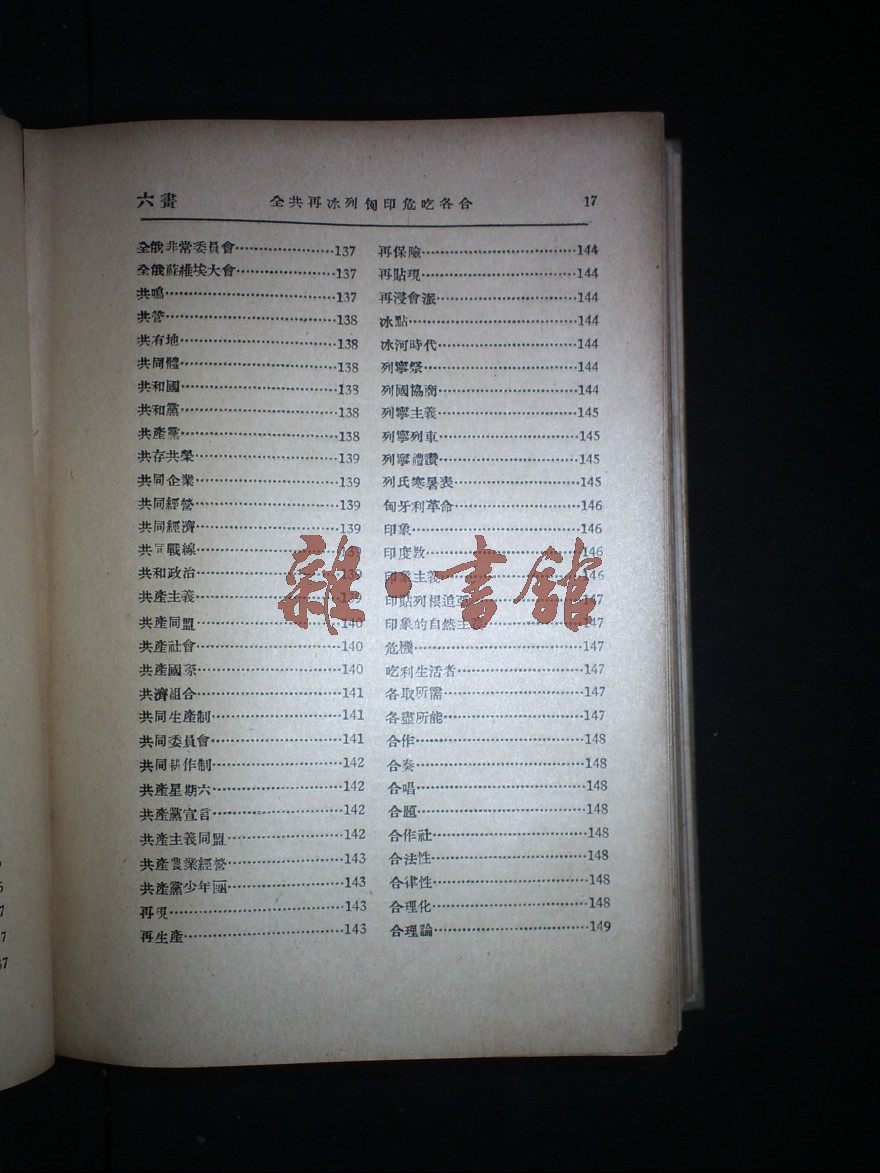 六畫 全共再冰列匈印危吃各合 17
全俄非常委員會…………………137
全俄蘇維埃大會…………………137
共鳴…………………137
共管…………………138
共有地…………………138
共同體…………………138
共和國…………………138
共和黨…………………138
共產黨…………………138
共存共榮…………………139
共同企業…………………139
共同經營…………………139
共同經濟…………………139
共同戰線…………………139
共和政治…………………139
共產主義…………………139
共產同盟…………………140
共產社會…………………140
共產國際…………………140
共濟組合…………………141
共同生產制…………………141
共同委員會…………………141
共同耕作制…………………142
共產星期六…………………142
共產黨宣言…………………142
共產主義同盟…………………142
共產農業經營…………………143
共產黨少年團…………………143
再現…………………143
再生產…………………143
再保險…………………144
再貼現…………………144
再浸會派…………………144
冰點…………………144
冰河時代…………………144
列寧祭…………………144
列國協商…………………144
列寧主義…………………145
列寧列車…………………145
列寧禮讚…………………145
列氏寒暑表…………………145
匈牙利革命…………………146
印象…………………146
印度教…………………146
印象主義…………………146
印貼列根追亞…………………147
印象的自然主義…………………147
危機…………………147
吃利生活者…………………147
各取所需…………………147
各盡所能…………………147
合作…………………148
合奏…………………148
合唱…………………148
合題…………………148
合作社…………………148
合法性…………………148
合律性…………………148
合理化…………………148
合理論…………………149
雜·書館